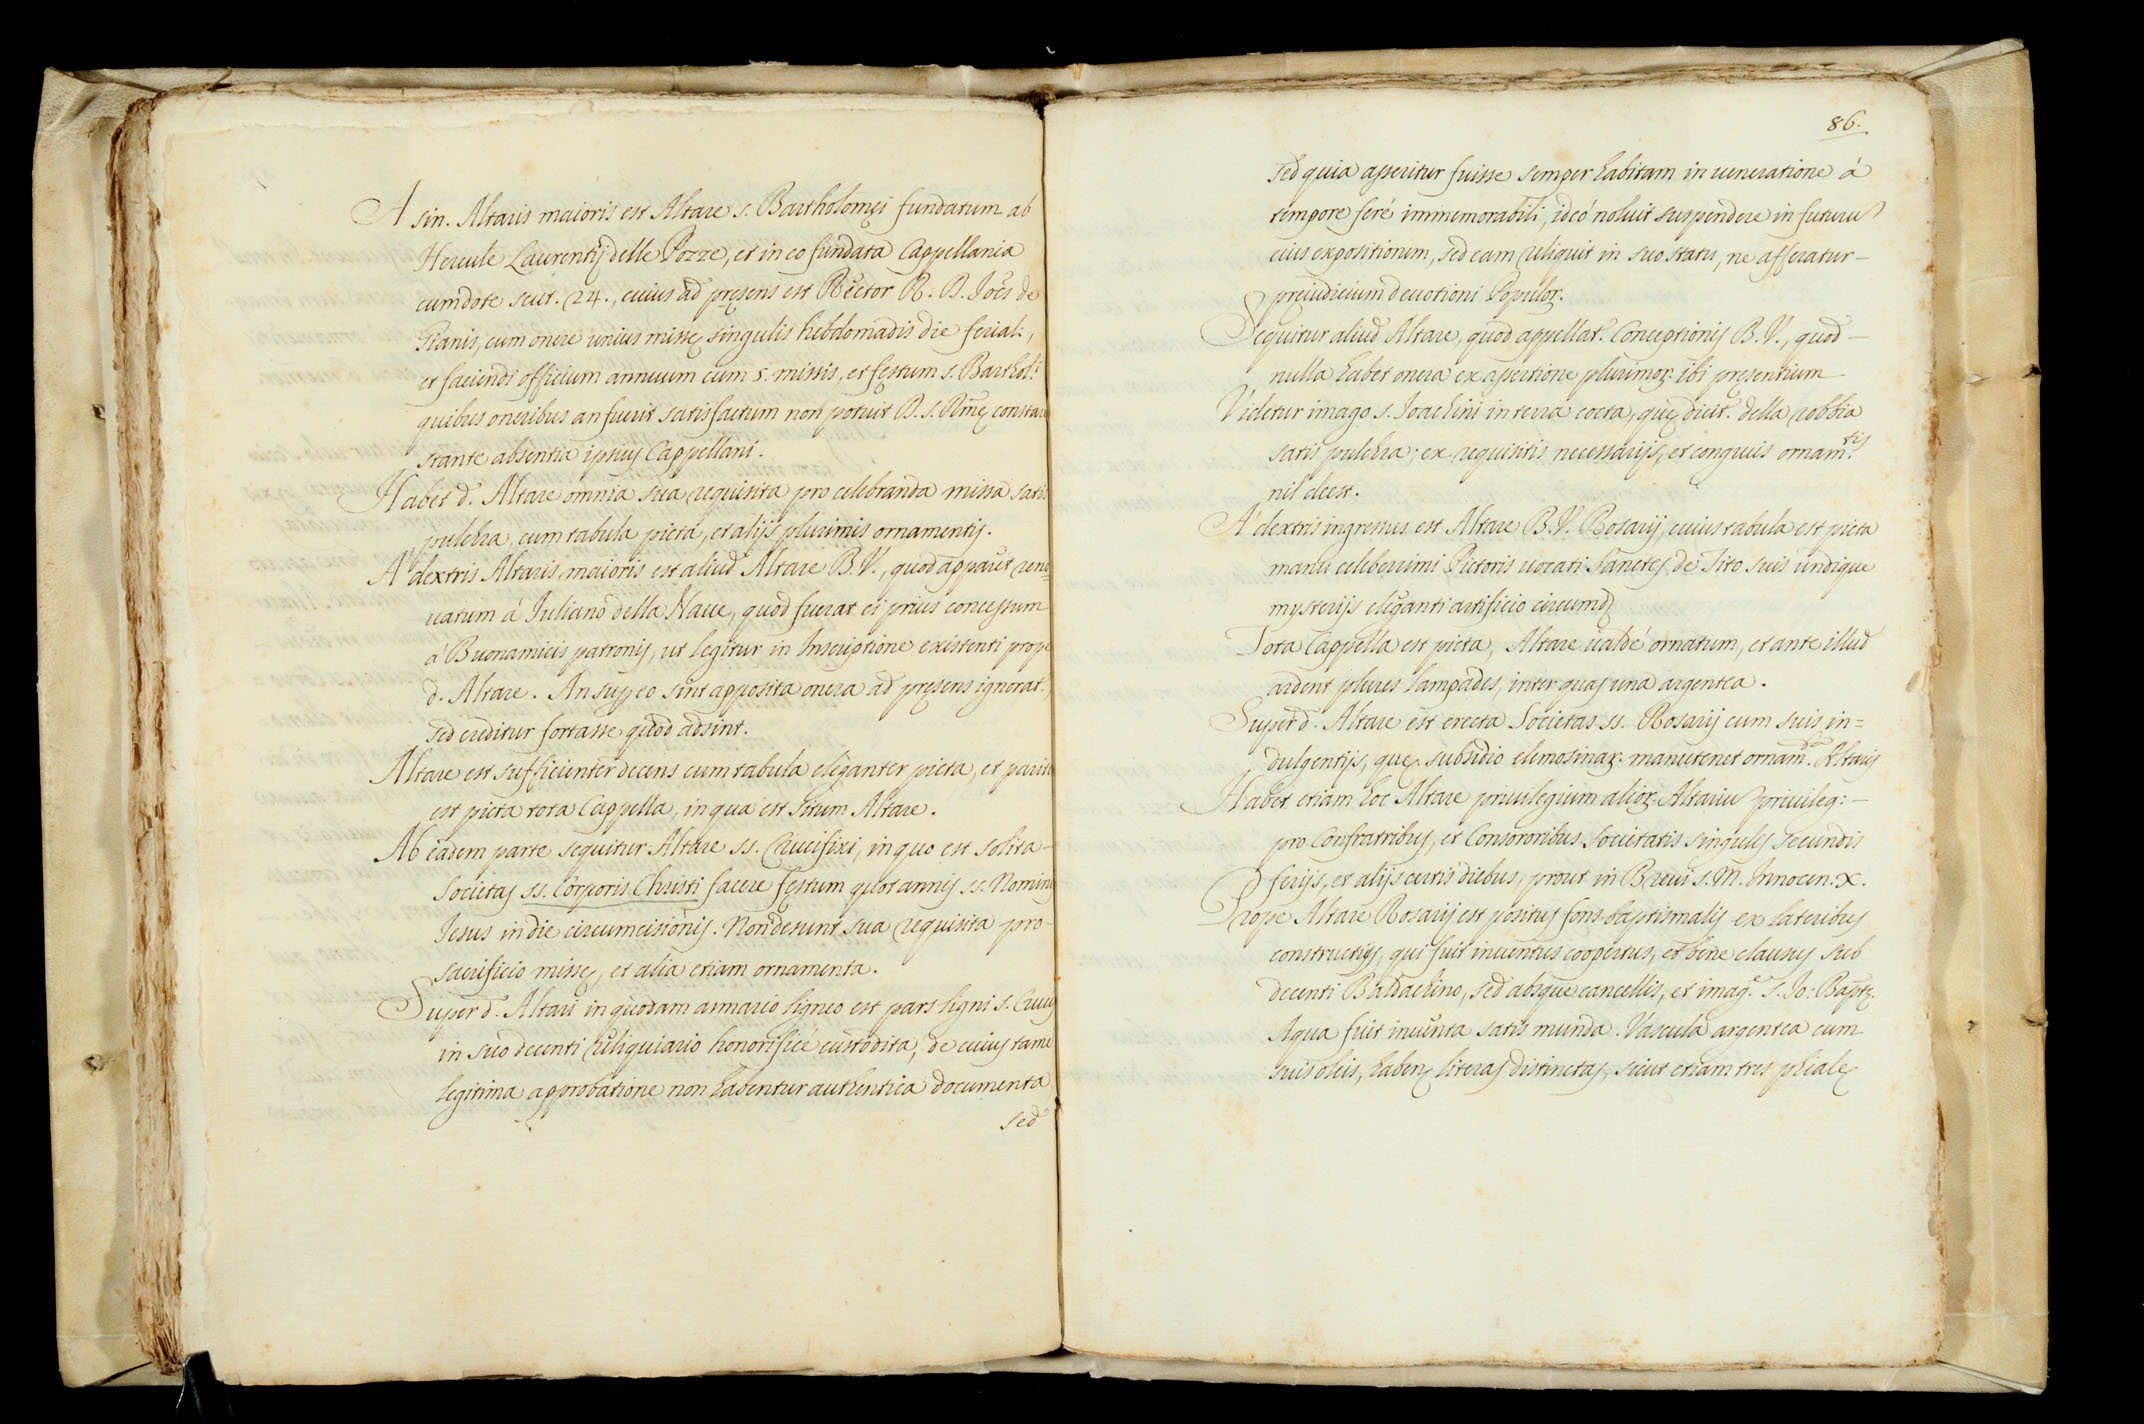 A sin. Altaris maioris est Altare s. Bartholomęi fundatum ab
Hercule Laurentij delle Pozze, et in eo fundata Cappellania
cum dote scut. 24., cuius ad pręsens est Rector R. D. Joēs de
Pianis, cum onere unius missę singulis hebdomadis die ferial:,
et faciendi officium annuum cum 5. missis, et festum s. Barthol:i
quibus oneribus an fuerit satisfactum non potuit D. s. Rm̄ę constare
stante absentia ipsius Cappellani.
Habet d. Altare omnia sua requisita pro celebranda missa satis
pulchra, cum tabula picta, et alijs plurimis ornamentis.
A' dextris Altaris maioris est aliud Altare B. V., quod apparet reno=
uatum á Juliano della Naue, quod fuerat ei prius concessum
á Buonamicis patronis, ut legitur in Inscriptione existenti prope
d. Altare. An sup. eo sint apposita onera ad pręsens ignorat.,
sed creditur fortasse quod adsint.
Altare est sufficienter decens cum tabula eleganter picta, et pariter
est picta tota Cappella, in qua est situm Altare.
Ab eadem parte sequitur Altare ss. Crucifixi, in quo est solita
Societas ss. Corporis Christi facere festum quot annis ss. Nominis
Jesus in die circumcisionis. Non desunt sua requisita pro
sacrificio missę, et alia etiam ornamenta.
Super d. Altari in quodam armario ligneo est pars ligni s. Crucis
in suo decenti reliquiario honorificé custodita, de cuius tamē
legitima approbatione non habentur authentica documenta
sed
86.
sed quia asseritur fuisse semper habitam in ueneratione á
tempore feré immemorabili, ideó noluit suspendere in futurū
eius expositionem, sed eam reliquit in suo statu, ne afferatur
pręiudicium deuotioni Populoꝝ.
Sequitur aliud Altare, quod appellat. Conceptionis B. V., quod
nulla habet onera ex assertione plurimoꝝ ibi pręsentium
Videtur imago s. Joachini in terra cocta, quę dicit. della robbia
satis pulchra; ex requisitis necessarijs, et congruis ornam.tis
nil deest.
A' dextris ingressus est Altare B. V. Rosarij, cuius tabula est picta
manu celeberrimi Pictoris uocati Sanctes de Tito suis undique
mysterijs eleganti artificio circumd.
Tota Cappella est picta, Altare ualdé ornatum, et ante illud
ardent plures lampades, inter quas una argentea.
Super d. Altare est erecta Societas ss. Rosarij cum suis in=
dulgentijs, quę subsidio elemosinaꝝ manutenet ornam. Altaris
Habet etiam hoc Altare priuilegium alioꝝ Altariū priuileg:
pro Confratribus, et Consororibus Societatis singulis secundis
ferijs, et alijs certis diebus, prout in Breui s. M. Innocen: X.
Prope Altare Rosarij est positus fons baptismalis ex lateribus
constructus, qui fuit inuentus coopertus, et bene clausus sub
decenti Baldachino, sed absque cancellis, et imag.e s. Jo: Baptę.
Aqua fuit inuenta satis munda. Vascula argentea cum
suis oleis, haben. literas distinctas, sicut etiam tres phialę